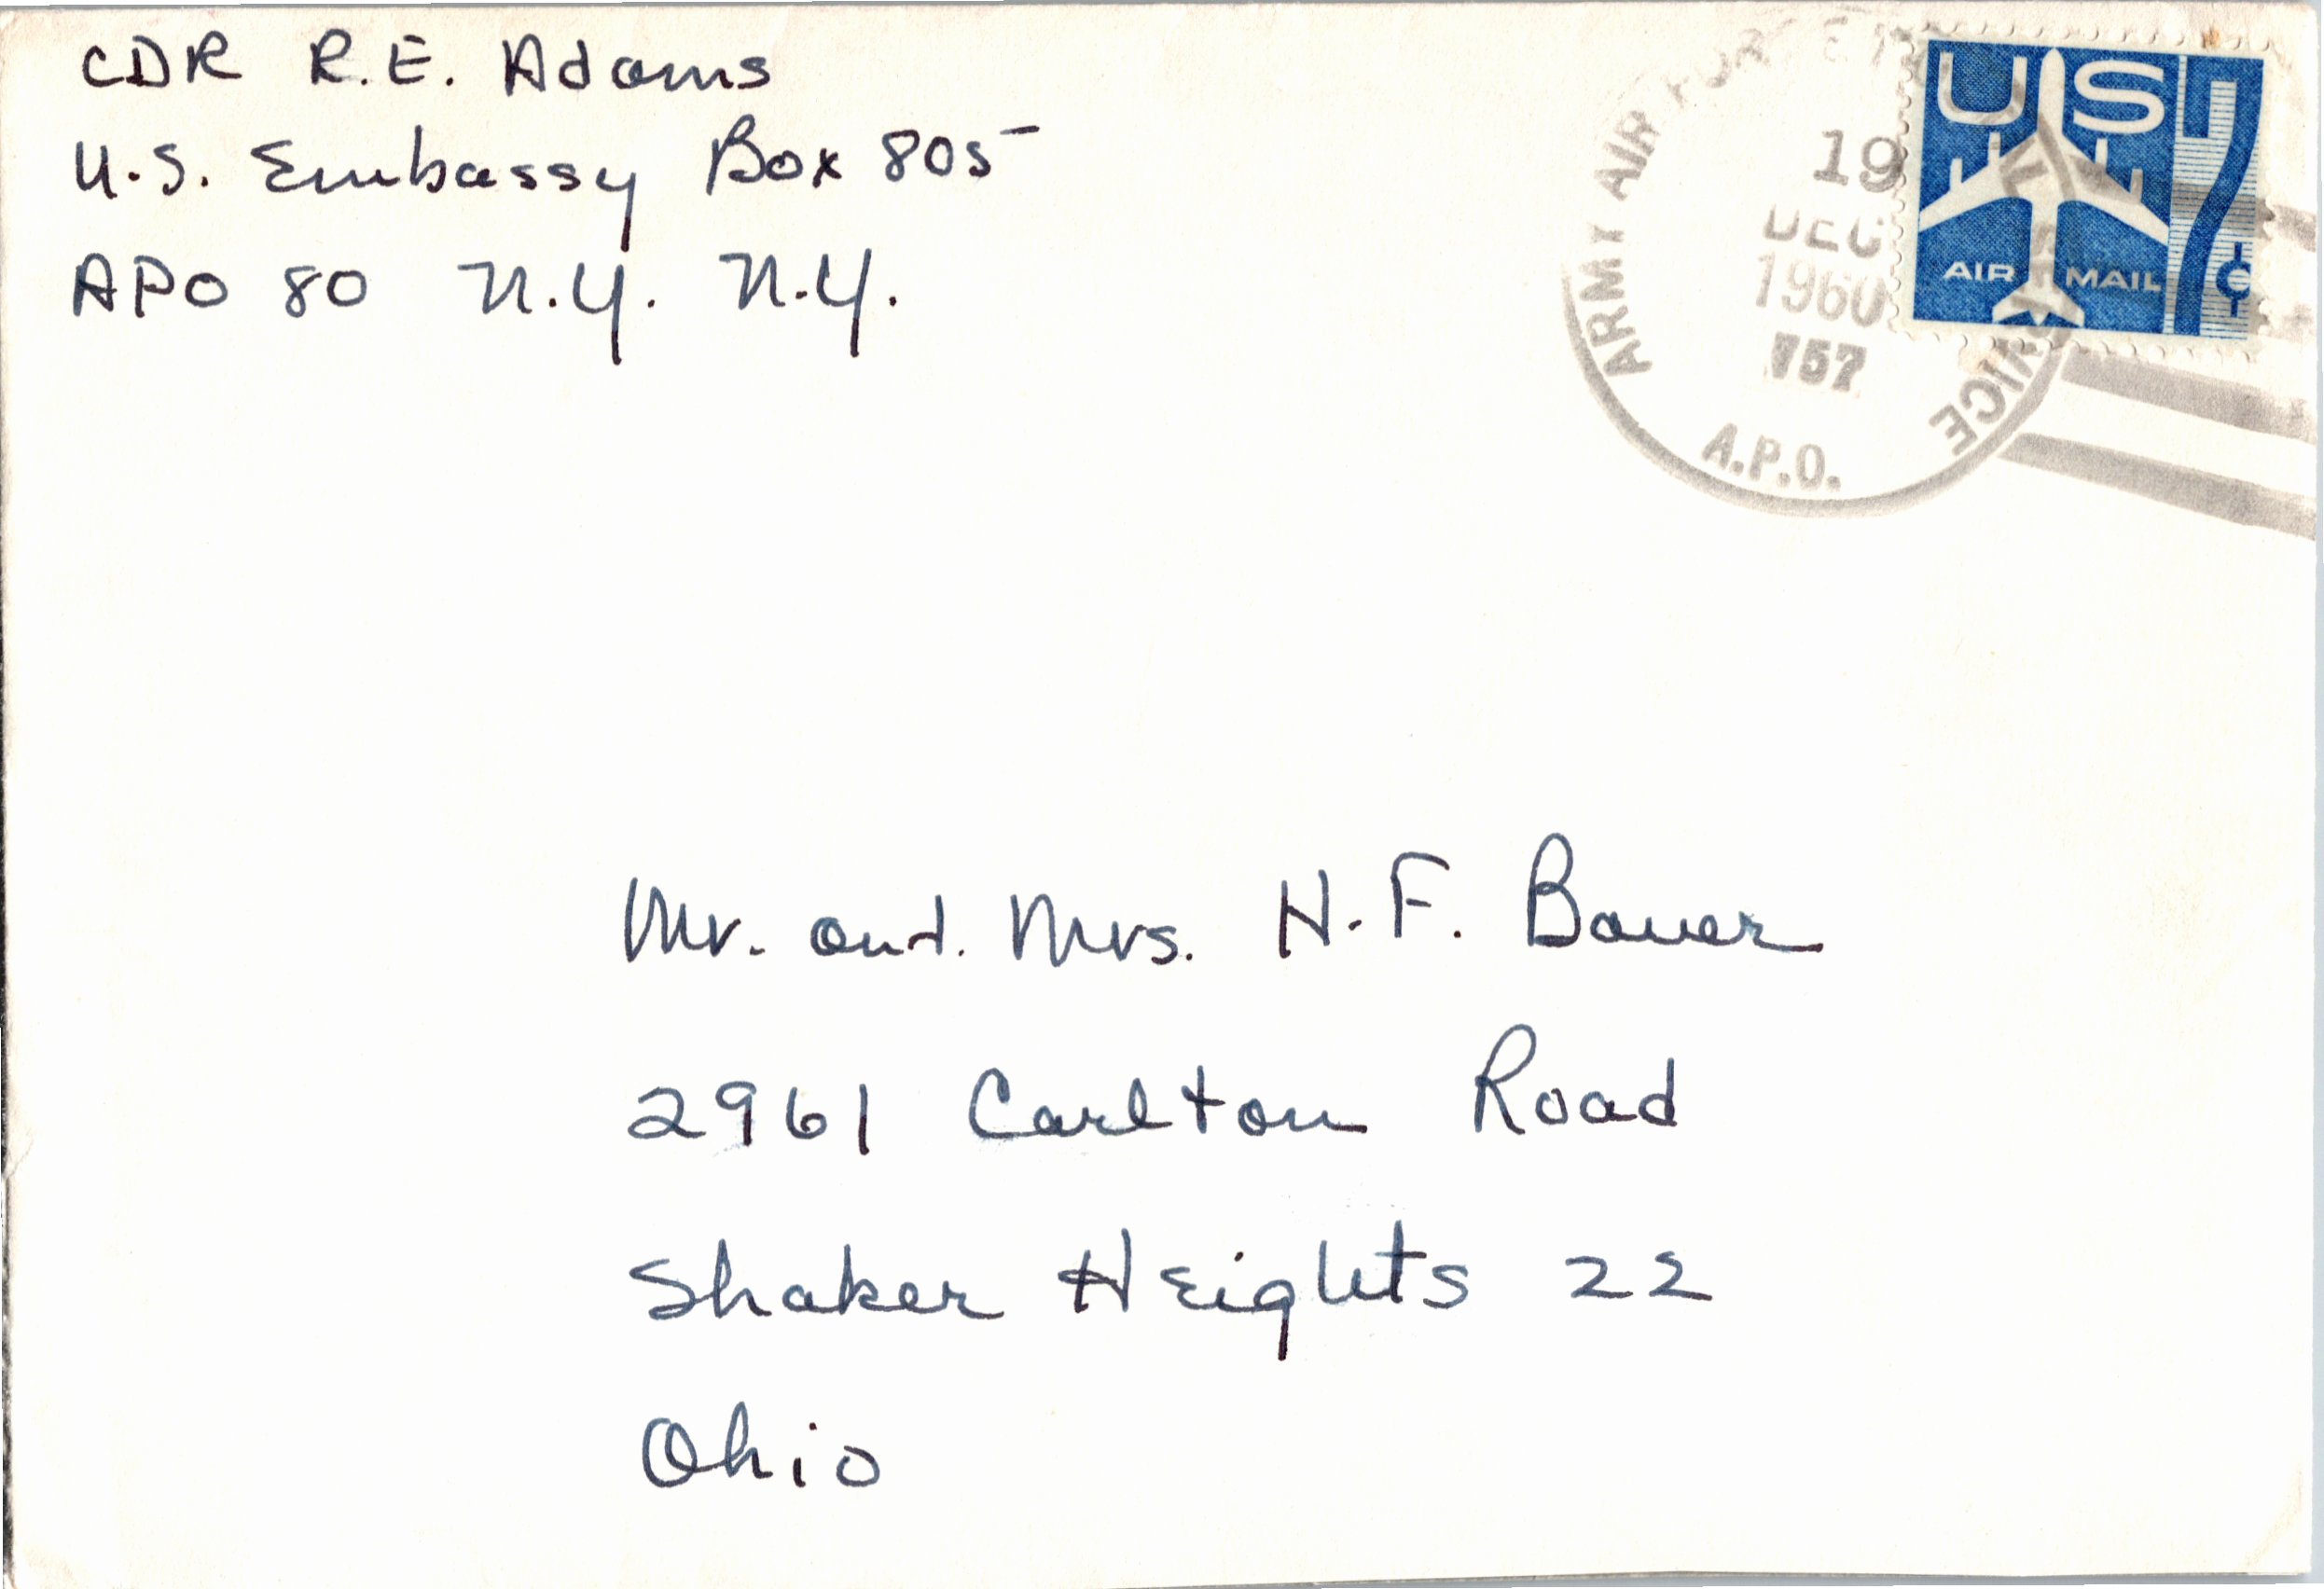 CDR R.E. Adams
U.S. Embassy Box 805
APO 80 N.Y. N.Y.
ARMY AIR FORCE POSTAL SERVICE
19
DEC
1960
757
A.P.O.
US 7¢
AIR MAIL
Mr. and. Mrs. H.F. Bauer
2961 Carlton Road
Shaker Heights 22
Ohio